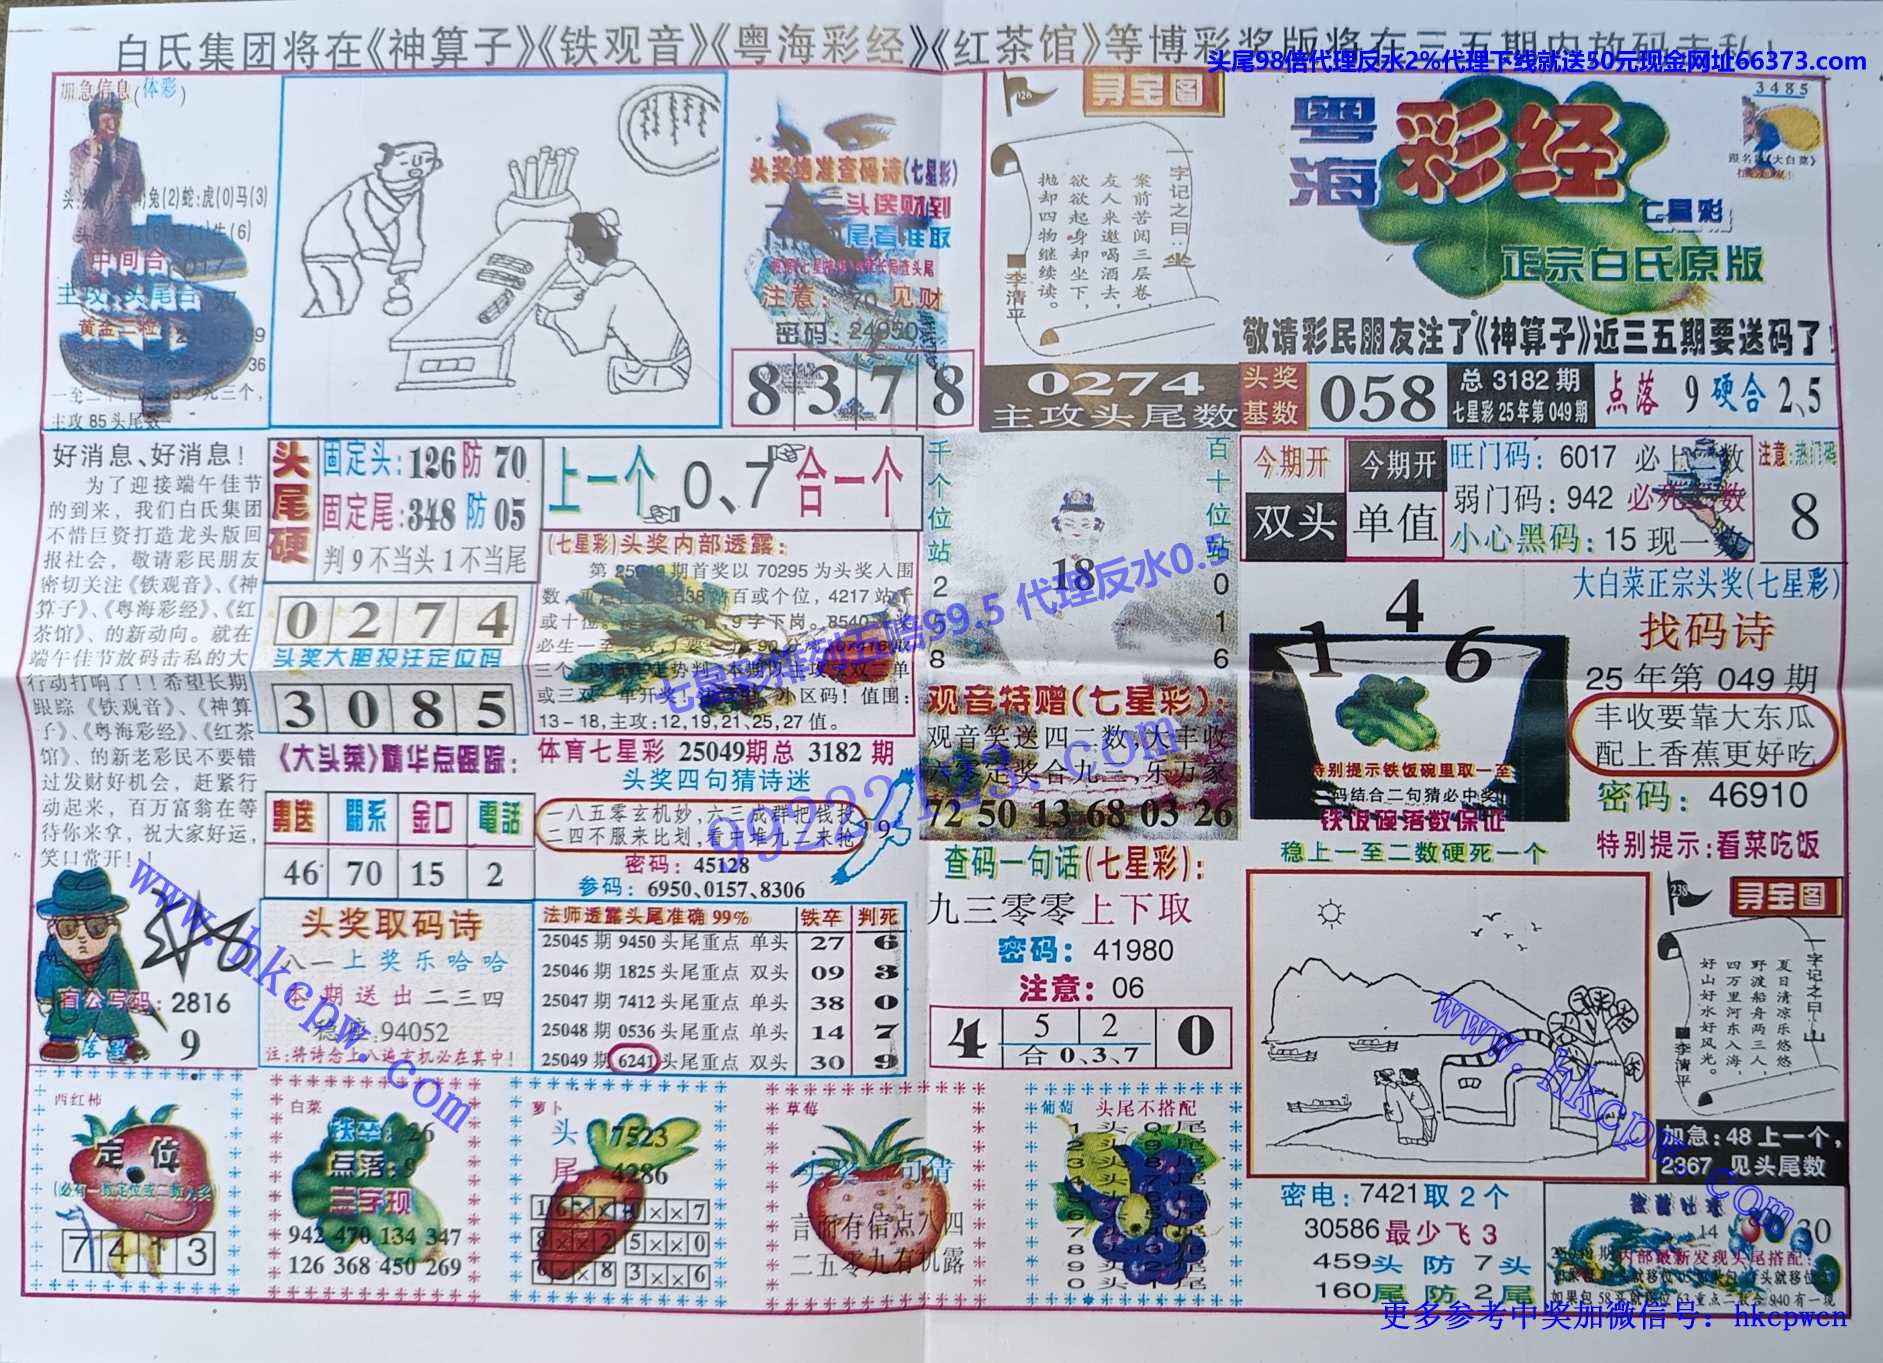 白氏集团将在《神算子》《铁观音》《粤海彩经》《红茶馆》等博彩奖版将在三五期内放码击私!
头尾98倍代理反水2%代理下线就送50元现金网址66373.com
加急信息(体彩)
兔(2)蛇:虎(0)马(3)
中间合:017
主攻:头尾合
主攻 85 头尾数
头奖绝准查码诗(七星彩)
头送财到
注意: 70 见财
密码: 24950
8 3 7 8
026
寻宝图
一字记之曰:坐
案前苦阅三层卷,
友人来邀喝酒去,
欲欲起身却坐下,
抛却四物继续读。
李清平
0274
主攻头尾数
粤海彩经
七星彩
正宗白氏原版
3485
敬请彩民朋友注了《神算子》近三五期要送码了!
头奖基数
058
总 3182 期
七星彩 25 年第 049 期
点落 9 硬合 2、5
好消息、好消息!
为了迎接端午佳节
的到来，我们白氏集团
不惜巨资打造龙头版回
报社会，敬请彩民朋友
密切关注《铁观音》、《神
算子》、《粤海彩经》、《红
茶馆》、的新动向。就在
端午佳节放码击私的大
行动打响了!!希望长期
跟踪《铁观音》、《神算
子》、《粤海彩经》、《红茶
馆》、的新老彩民不要错
过发财好机会，赶紧行
动起来，百万富翁在等
待你来拿，祝大家好运,
笑口常开!
头尾硬
固定头:126 防 70
固定尾:348 防 05
判 9 不当头 1 不当尾
0 2 7 4
头奖大胆投注定位码
3 0 8 5
上一个 0、7 合一个
(七星彩)头奖内部透露:
第 25049 期首奖以 70295 为头奖入围
13－18,主攻:12,19,21,25,27 值。
千个位站 2 5 8
18
百十位站 0 1 6
今期开 双头
今期开 单值
旺门码: 6017 必上二数
弱门码: 942 必死二数
小心黑码: 15 现一数
注意:热门码
8
《大头菜》精华点跟踪:
勇送 關系 金口 電話
46 70 15 2
体育七星彩 25049期总 3182 期
头奖四句猜诗迷
一八五零玄机妙,六三成群把钱找
二四不服来比划,看中堆九二来抢
9
密码: 45128
参码: 6950、0157、8306
观音特赠(七星彩):
观音笑送四二数,大丰收
六零定奖合九三,乐万家
72 50 13 68 03 26
1 4 6
特别提示铁饭碗里取一至
码结合二句猜必中奖
铁饭碗落数保证
稳上一至二数硬死一个
大白菜正宗头奖(七星彩)
找码诗
25 年第 049 期
丰收要靠大东瓜
配上香蕉更好吃
密码: 46910
特别提示:看菜吃饭
盲公写码: 2816
落数 9
头奖取码诗
八一上奖乐哈哈
本期送出二三四
稳码:94052
注:将诗念上八遍玄机必在其中!
法师透露头尾准确 99% 铁卒 判死
25045 期 9450 头尾重点 单头 27 6
25046 期 1825 头尾重点 双头 09 3
25047 期 7412 头尾重点 单头 38 0
25048 期 0536 头尾重点 单头 14 7
25049 期 6241 头尾重点 双头 30 9
查码一句话(七星彩):
九三零零上下取
密码: 41980
注意: 06
4 5 2 0
合 0、3、7
238
寻宝图
一字记之曰:山
夏日清凉乐悠悠,
野渡船舟两三人,
四万里河东入海,
好山好水好风光。
李清平
加急: 48 上一个,
2367 见头尾数
西红柿
定位
7 4 1 3
白菜
铁卒: 26
点落: 9
三字现
942 470 134 347
126 368 450 269
萝卜
头 7523
尾 4286
8 × × 2 5 × × 0
6 × × 8 3 × × 6
草莓
头奖一句猜
言而有信点八四
二五零九有机露
葡萄 头尾不搭配
1 头 0 尾
密电: 7421 取 2 个
30586 最少飞 3
459 头 防 7 头
160 尾 防 2 尾
14
30
内部最新发现头尾搭配:
如果包 58 头就移位 63 重点二数合 940 有一现
七星彩排列五赔99.5 代理反水0.5
99222123.com
www.hkcpw.com
www.hkcpw.com
更多参考中奖加微信号: hkcpwcn